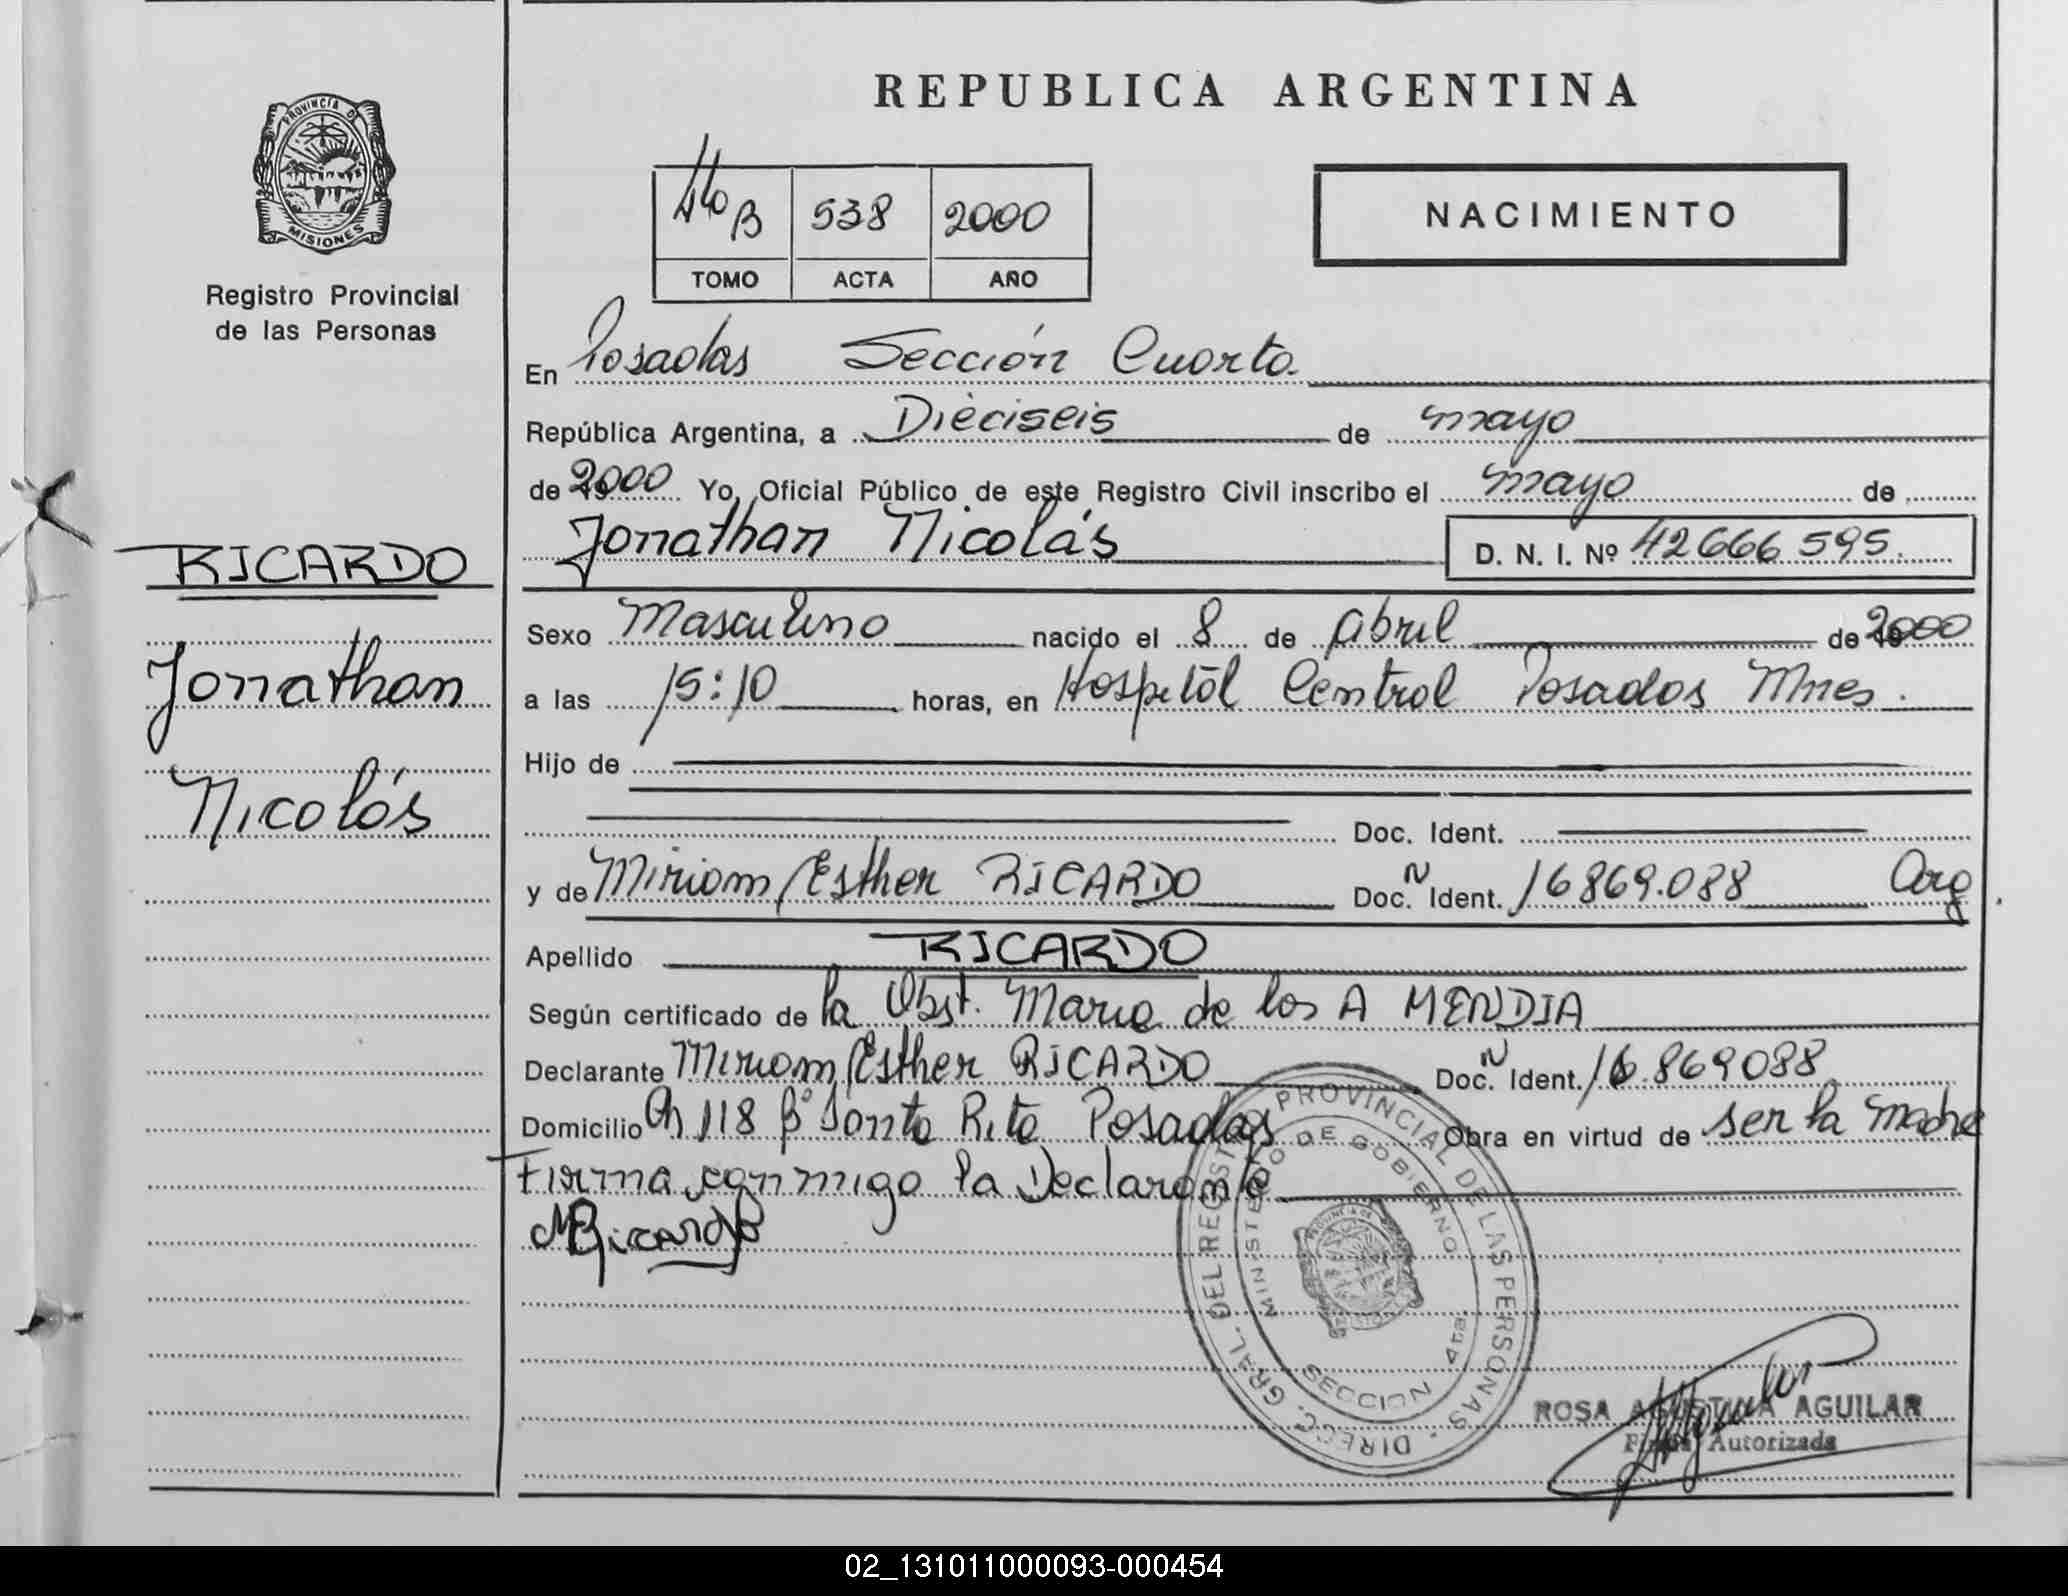 PROVINCIA DE
MISIONES
Registro Provincial
de las Personas
RICARDO
Jonathan
Nicolás
REPUBLICA ARGENTINA
B 538 2000
TOMO ACTA AÑO
NACIMIENTO
En Posadas Sección Cuarta
República Argentina, a Dieciseis de mayo
de 2000 Yo, Oficial Público de este Registro Civil inscribo el mayo de
Jonathan Nicolás D. N. I. Nº 42666 595.
Sexo Masculino nacido el 8 de abril de 2000
a las 15:10 horas, en Hospital Central Posadas Mnes.
Hijo de
Doc. Ident.
y de Miriam Esther RICARDO Doc. N Ident. 16869.088 Arg
Apellido RICARDO
Según certificado de la Obst. Maria de los A MENDIA
Declarante Miriam Esther RICARDO Doc. N Ident. 16.869088
Domicilio Ch 118 Bº Santa Rita Posadas Obra en virtud de ser la madre
Firma conmigo la Declarante
MRicardo
DIRECC. GRAL. DEL REGISTRO PROVINCIAL DE LAS PERSONAS
MINISTERIO DE GOBIERNO
SECCION 4ta.
ROSA AGUSTINA AGUILAR
Firma Autorizada
02_131011000093-000454